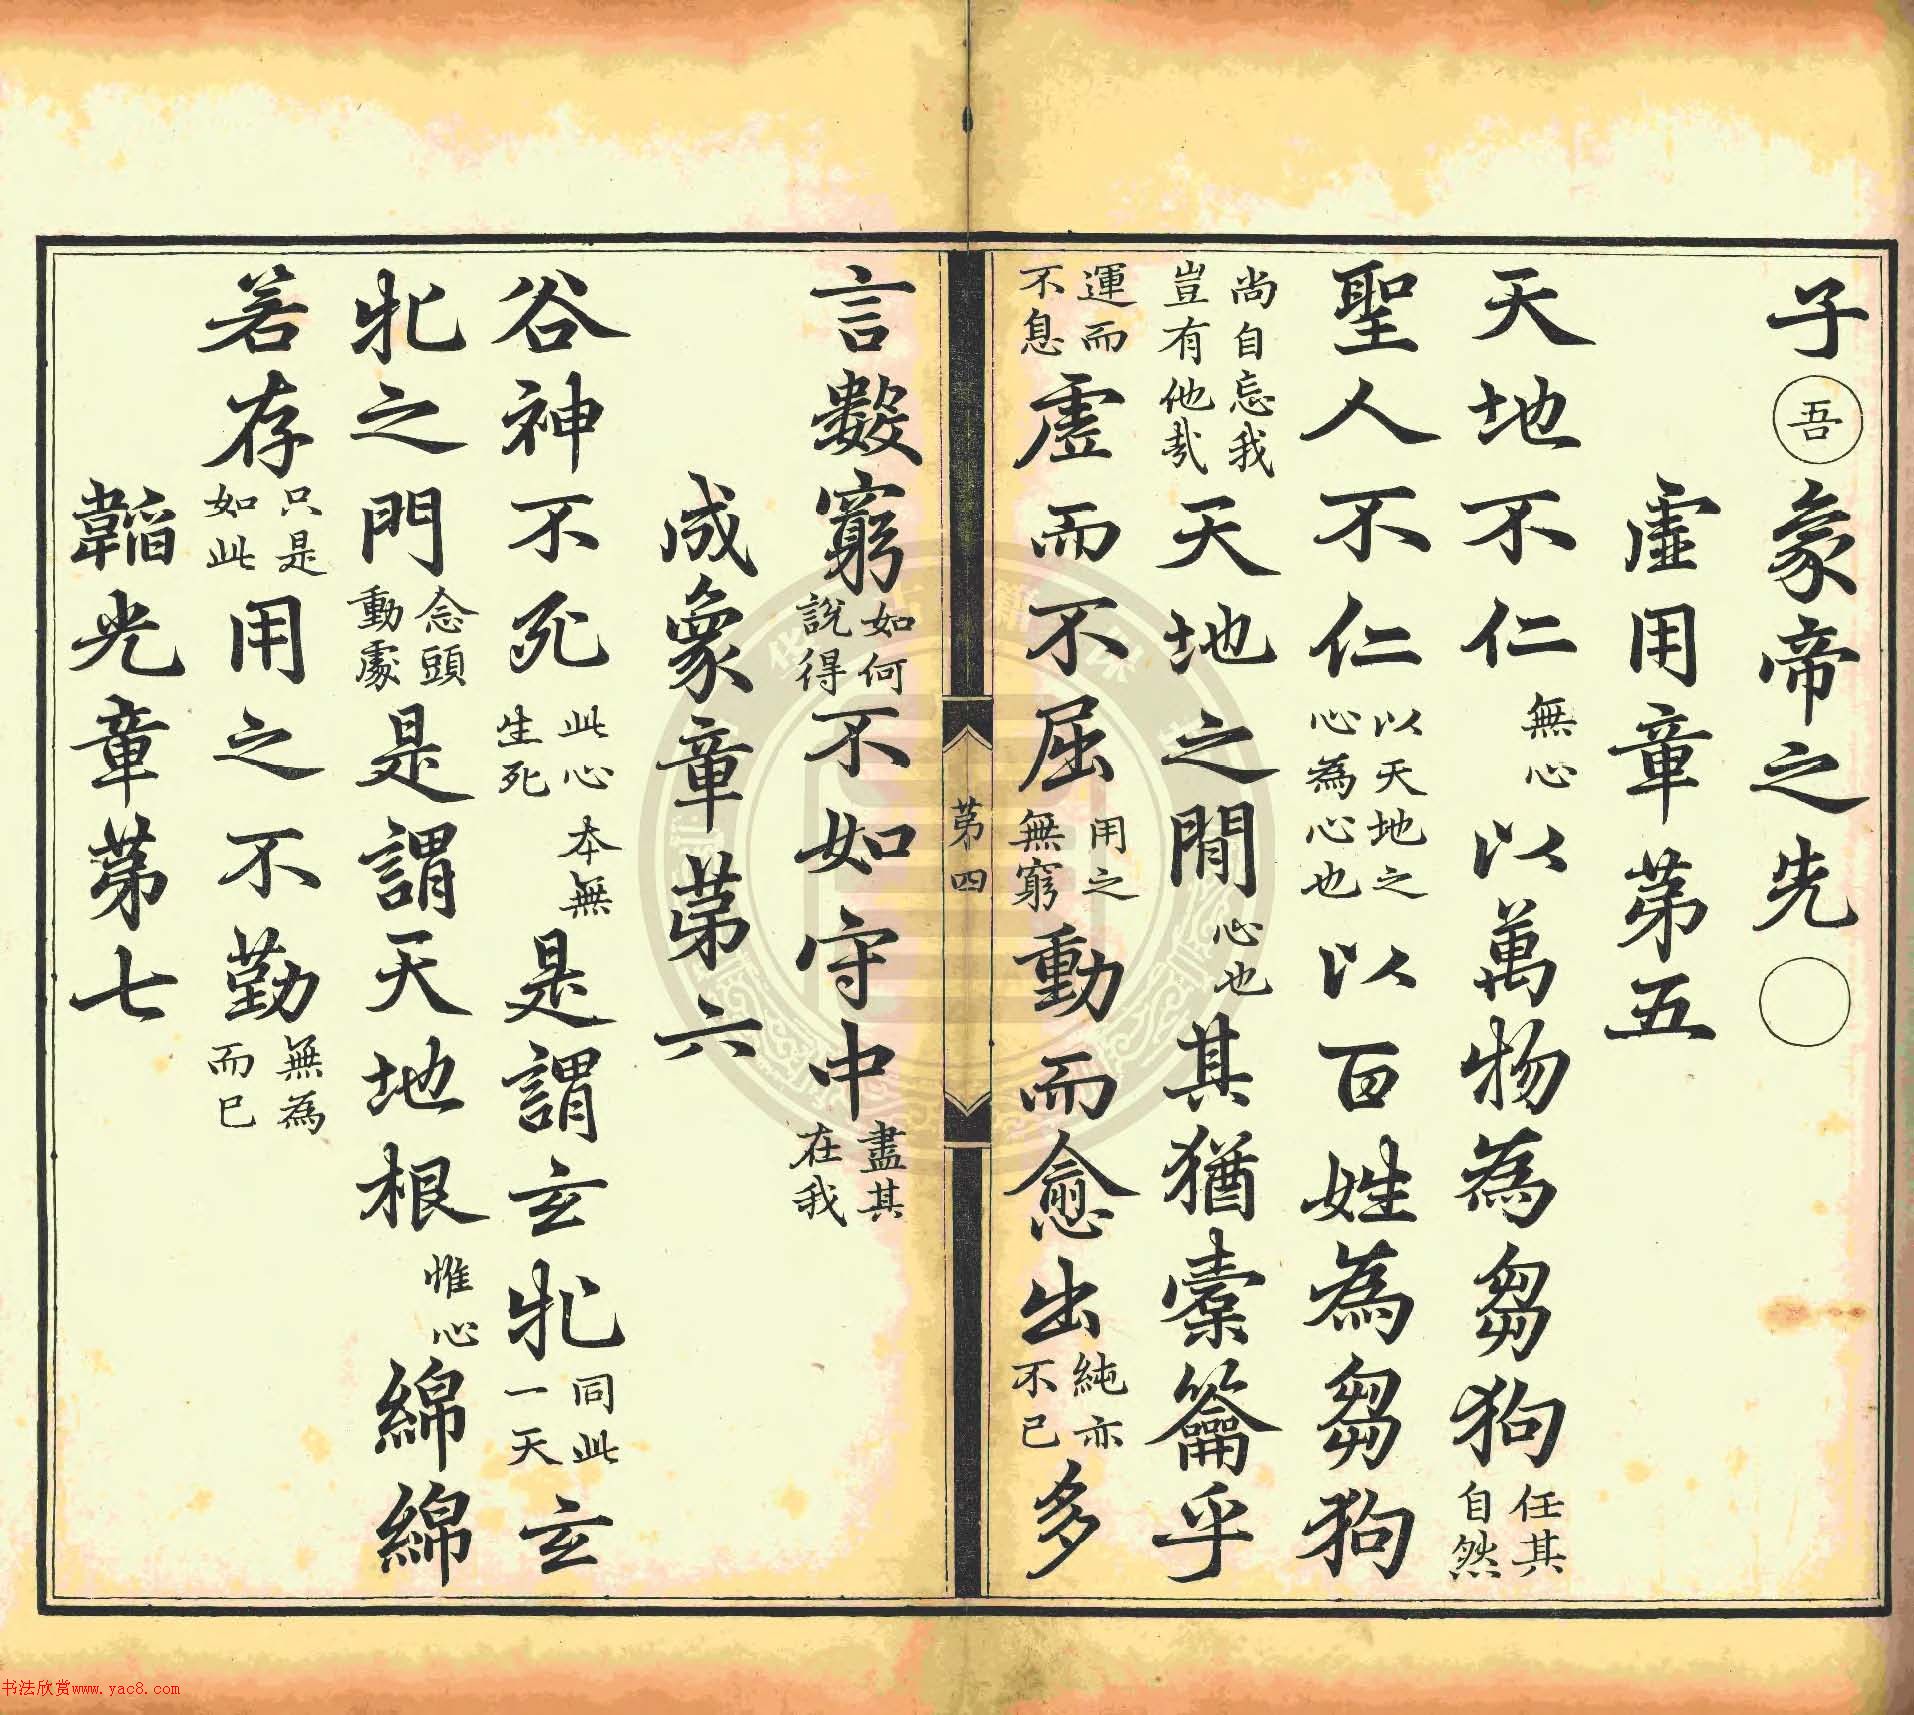 子吾象帝之先〇
虛用章第五
天地不仁無心以萬物為芻狗任其自然
聖人不仁以天地之心為心也以百姓為芻狗
尚自忘我豈有他哉天地之閒心也其猶橐籥乎
運而不息虛而不屈用之無窮動而愈出純亦不已多
第四
言數窮如何說得不如守中盡其在我
成象章第六
谷神不死此心本無生死是謂玄牝同此一天玄
牝之門念頭動處是謂天地根惟心綿綿
若存只是如此用之不勤無為而已
韜光章第七
书法欣赏www.yac8.com